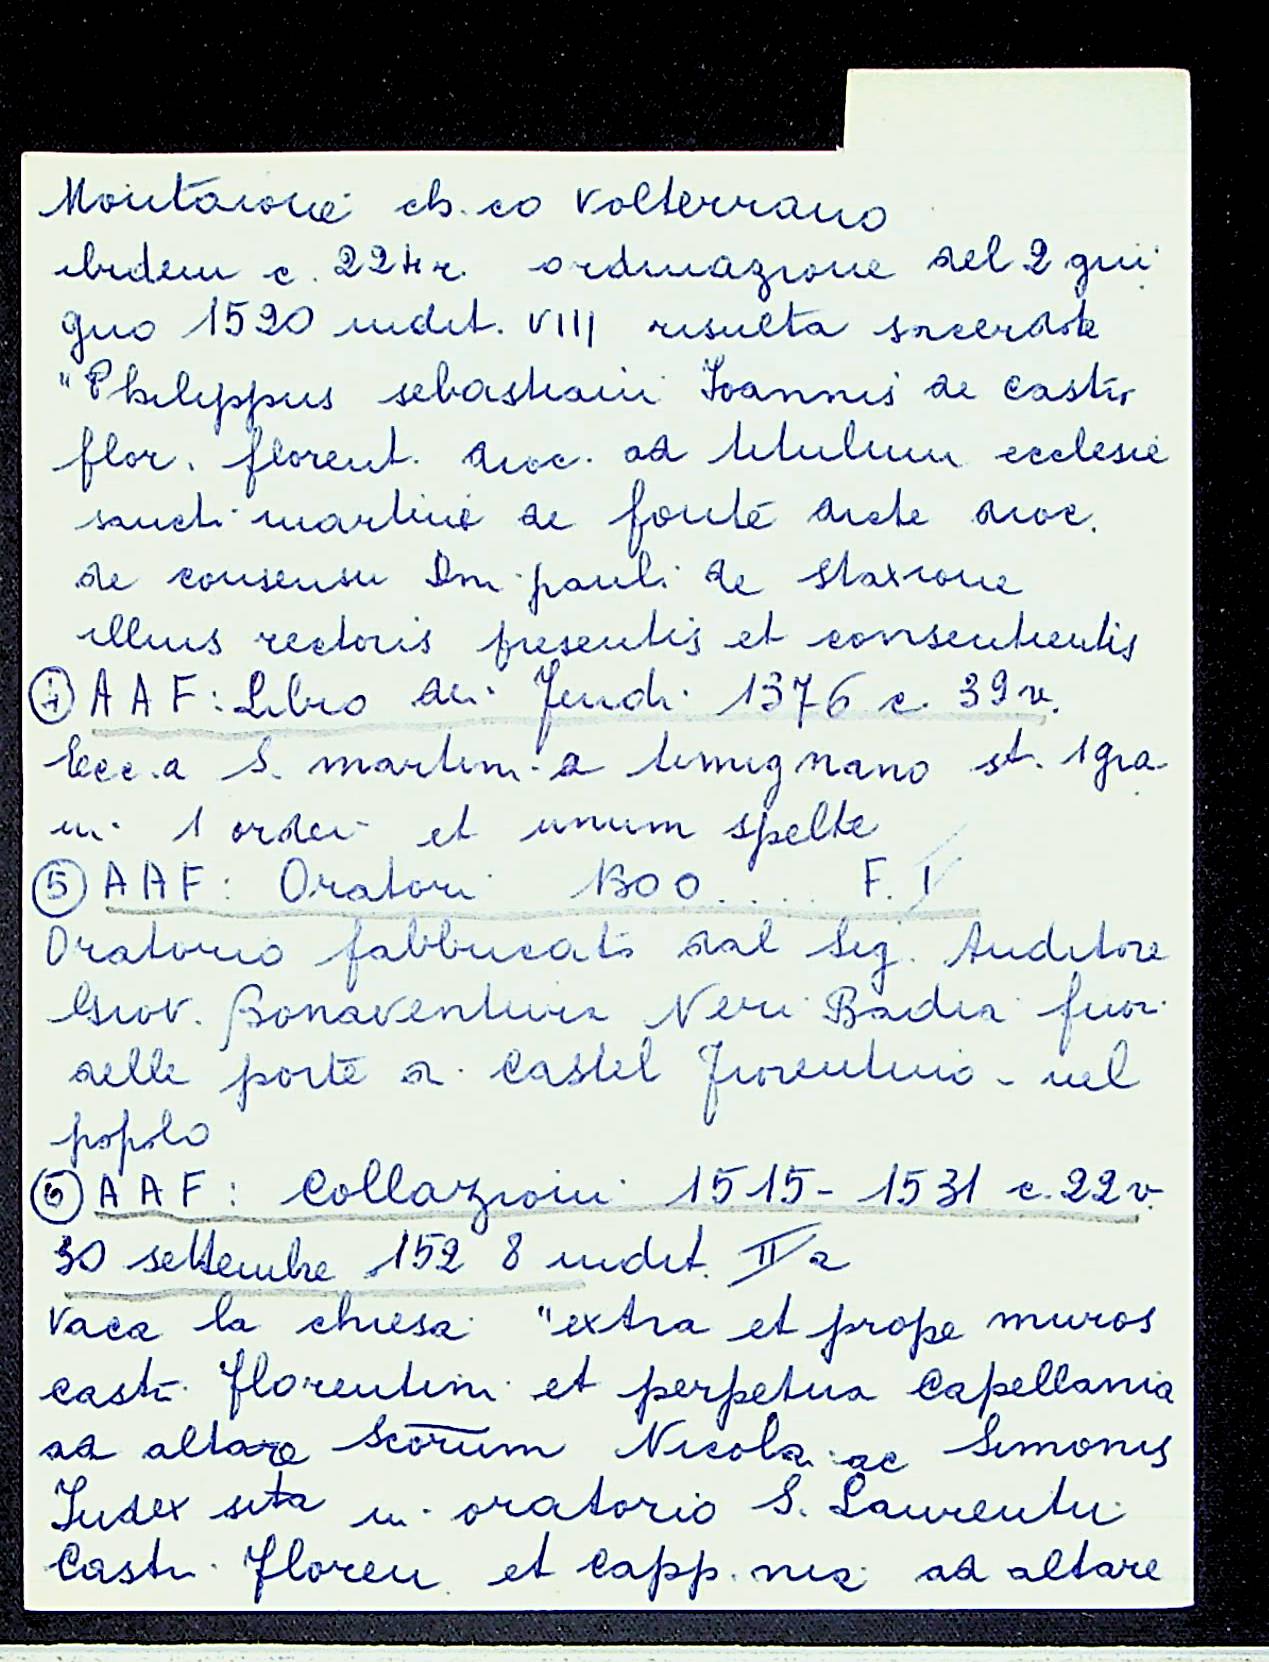 Montaione ch.co Volterrano
ibidem c. 224r. ordinazione del 2 giu
gno 1520 indit. VIII risulta sacerdote
"Philippus sebastiani Joannis de castr.
flor. florent. dioc. ad titulum ecclesie
sancti martini de fonte dicte dioc.
de consensu Dni pauli de staxione
illius rectoris presentis et consentientis
④ AAF: Libro dei Feudi 1376 c. 39v.
Ecc.a S. martini a timignano st. 1 gra
ni 1 ordei et unum spelte
⑤ AAF: Oratori 1300..... F. I
Oratorio fabbricato dal Sig. Auditore
Giov. Bonaventura Neri Badia fuor
delle porte a Castel Fiorentino - nel
popolo
⑥ AAF: Collazioni 1515-1531 c. 22v.
30 settembre 1528 indit. IIa
Vaca la chiesa "extra et prope muros
castri florentini et perpetua Capellania
ad altare Scorum Nicolai ac Simonis
Judex sita in oratorio S. Laurentii
Castri Floren. et Capp.nia ad altare